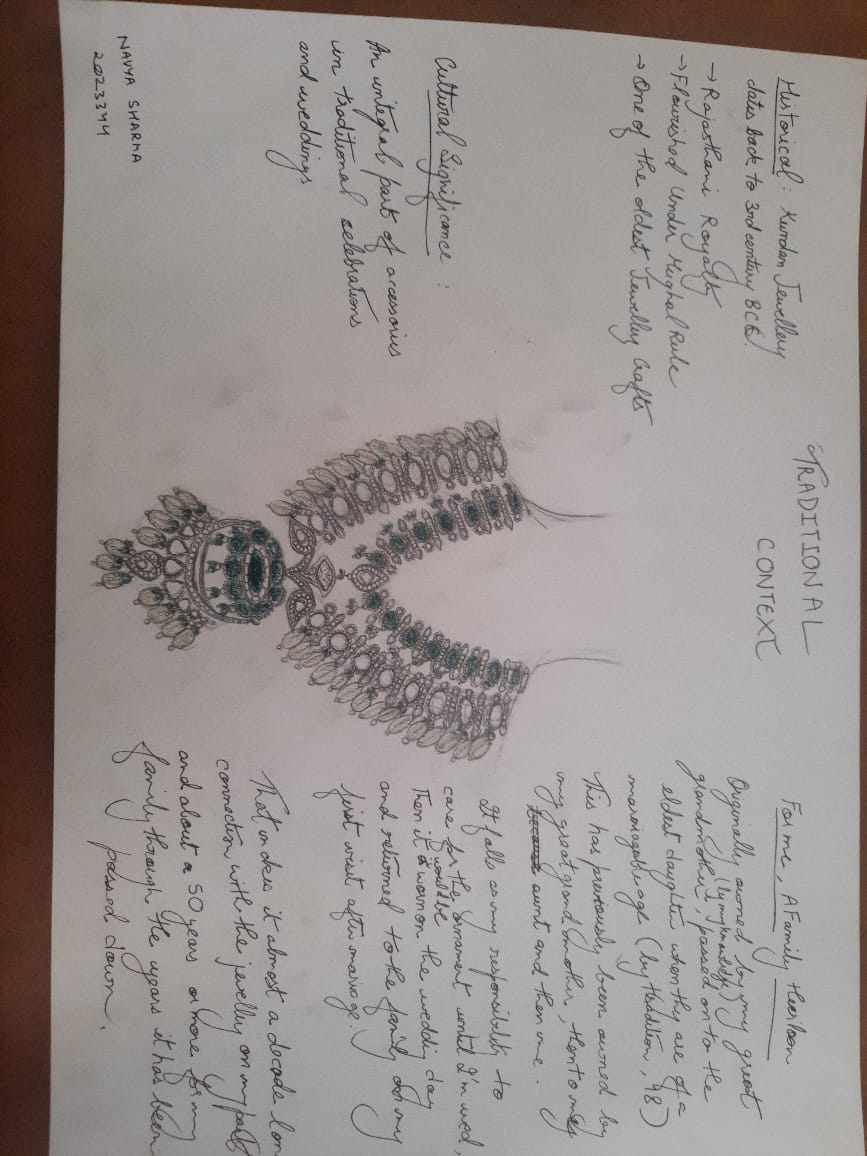 TRADITIONAL
CONTEXT
Historical : Kundan Jewellery
dates back to 3rd century BCE.
→ Rajasthani Royalty
→ Flourished Under Mughal Rule
→ One of the oldest Jewellery Crafts
Cultural Significance :
An integral part of accessories
in traditional celebrations
and weddings
NAVYA SHARMA
2023344
For me, A Family Heirloom
Originally owned by my great
(by my knowledge)
grandmother, passed on to the
eldest daughter when they are of a
marriageable age (by tradition, 18)
This has previously been owned by
my great grandmother, then to my
aunt and then me.
It falls as my responsibility to
care for the ornament until I'm wed,
Then it would be worn on the wedding day
and returned to the family on my
first visit after marriage.
That makes it almost a decade lon
connection with the jewellery on my part
and about a 50 years or more for my
family through the years it has been
passed down.